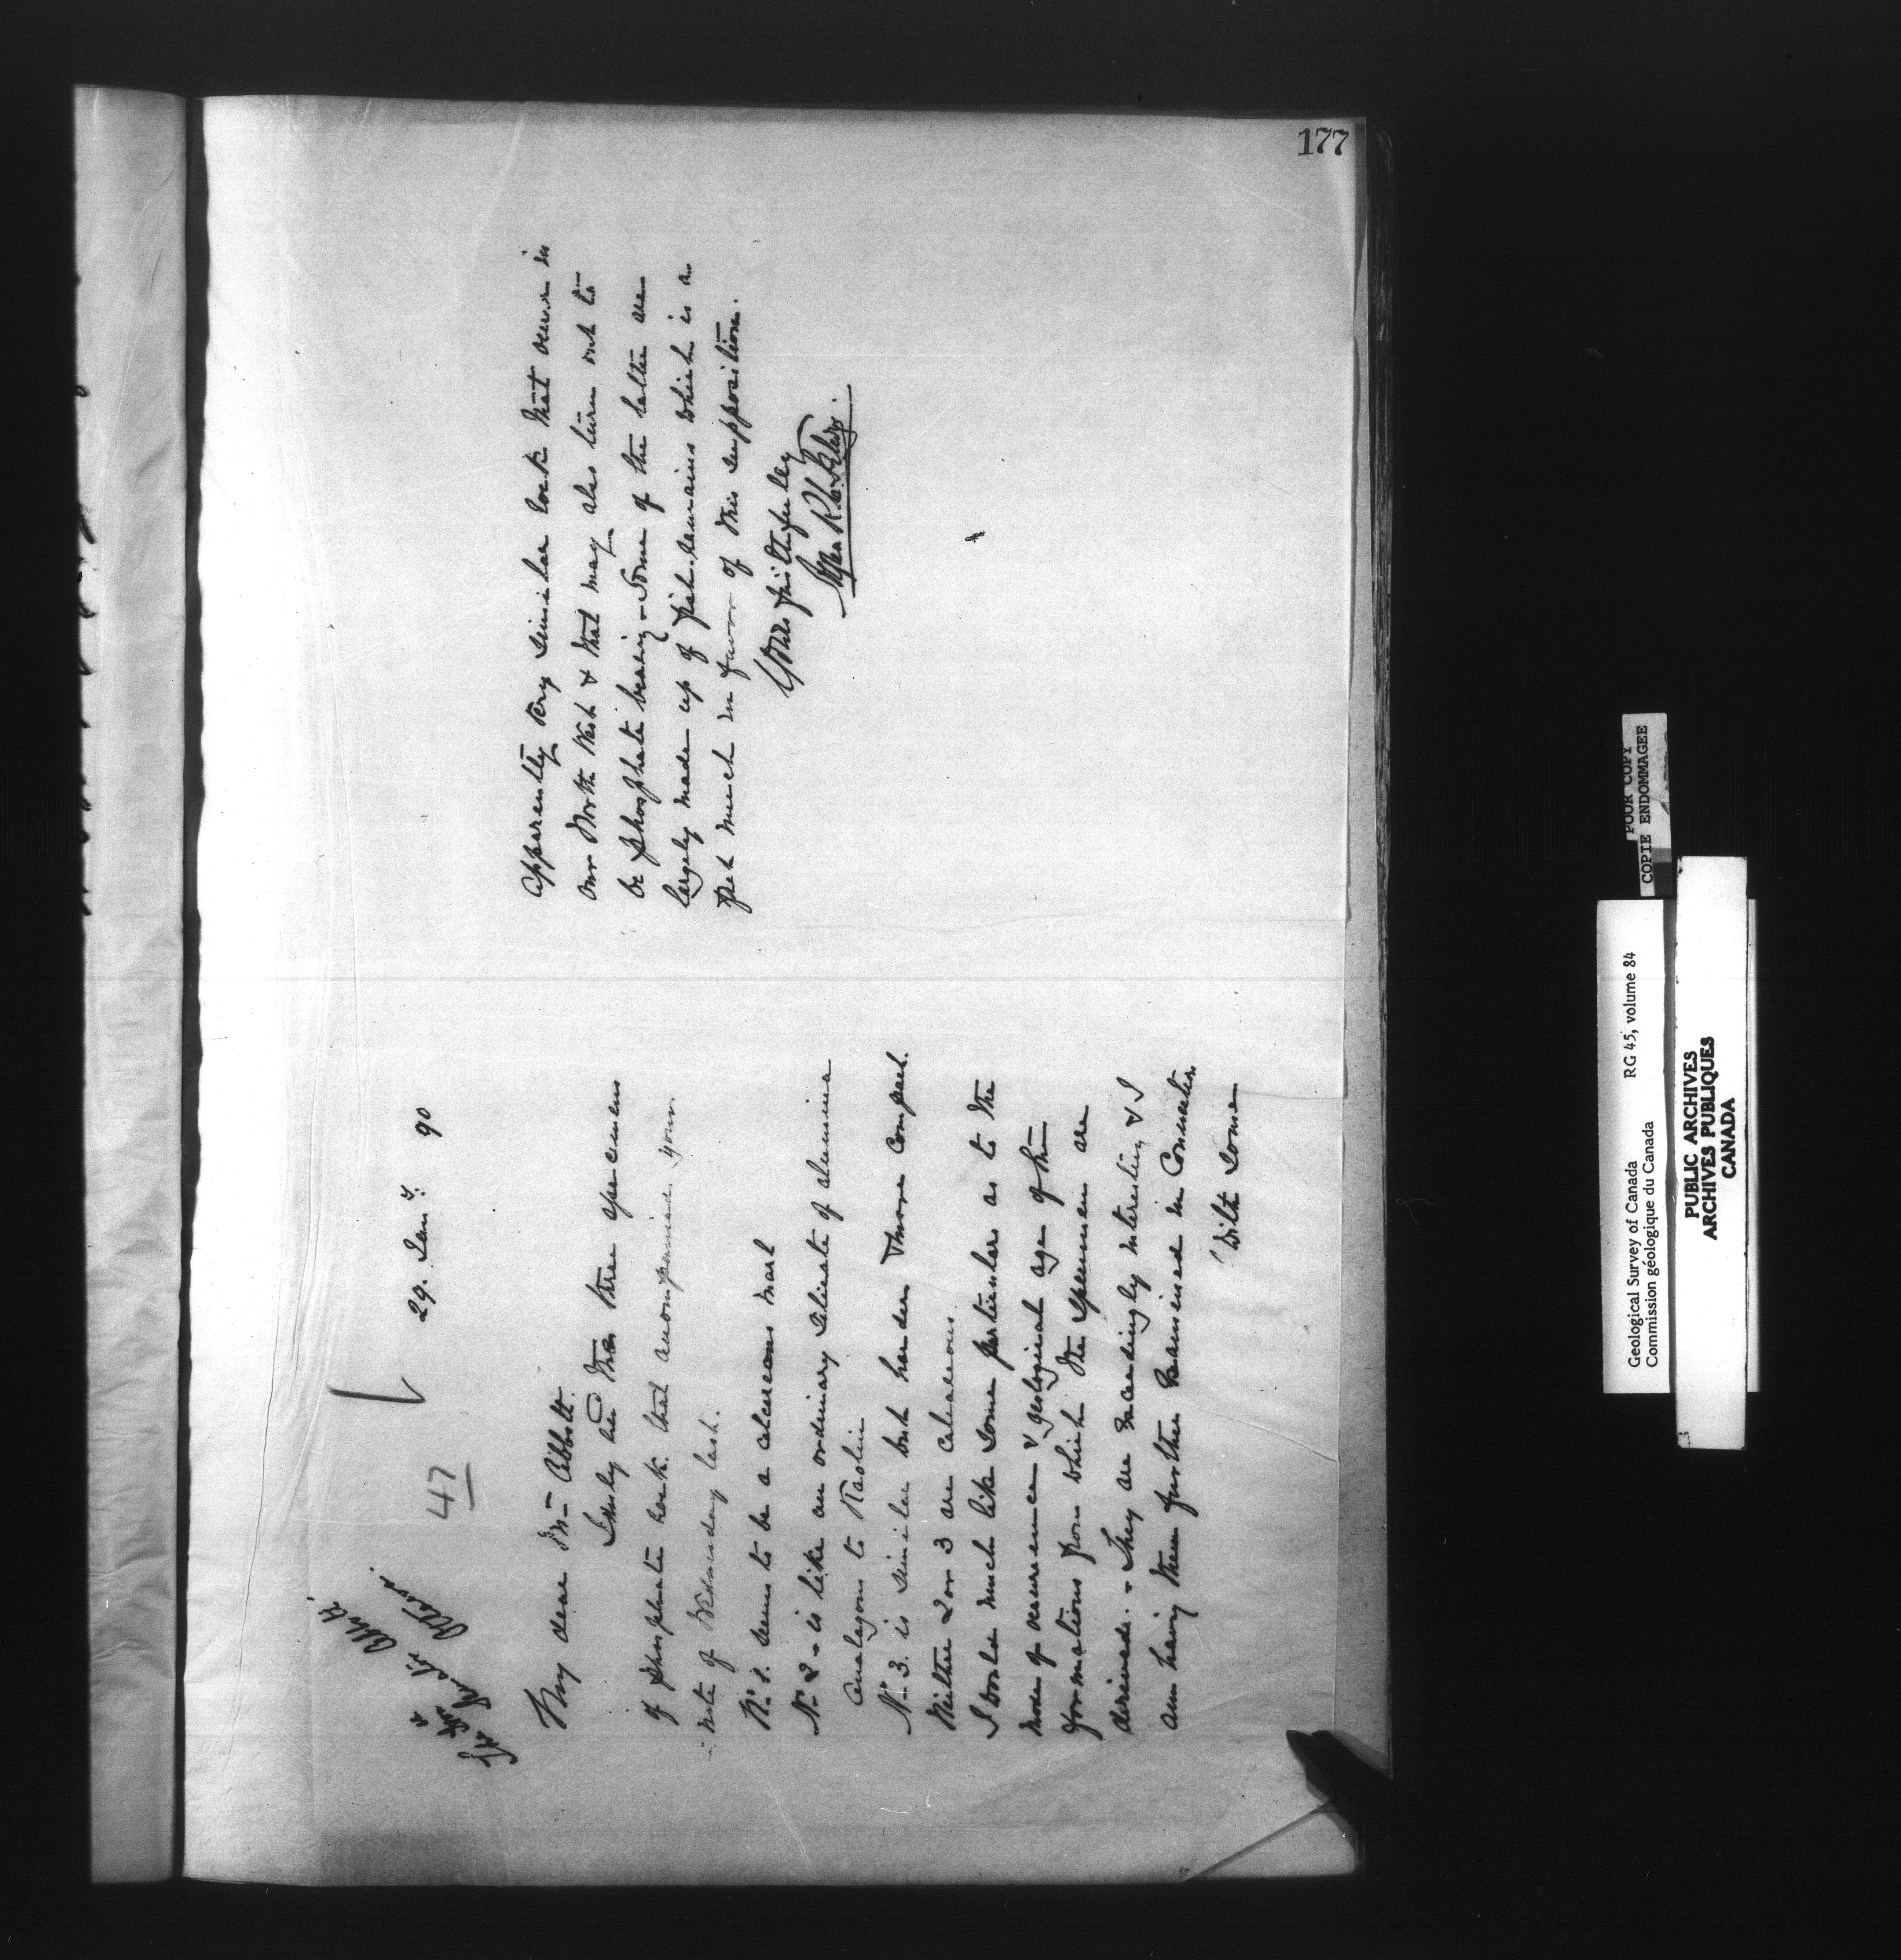 177
47
29. Jany. 90
My dear Mr Abbott
I duly had the three specimens
of phosphate rock that accompanied your
note of Wednesday last.
No. 1. seems to be a calcareous marl
No. 2 - is like an ordinary silicate of alumina
analagous to Kaolin
No. 3. is similar but harder & more compact.
Neither 2 or 3 are calcareous
I would much like some particulars as to the
mode of occurrence & geological age of the
formations from which the specimens are
derived. - They are exceedingly interesting & I
am having them further examined in connection
with some
apparently very similar rock that occurs in
our North West & that may also turn out to
be phosphate bearing - Some of the latter are
largely made up of fish remains which is a
fact much in favor of this supposition.
Yours faithfully
POOR COPY
COPIE ENDOMMAGEE
Geological Survey of Canada RG 45, volume 84
Commission géologique du Canada
PUBLIC ARCHIVES
ARCHIVES PUBLIQUES
CANADA